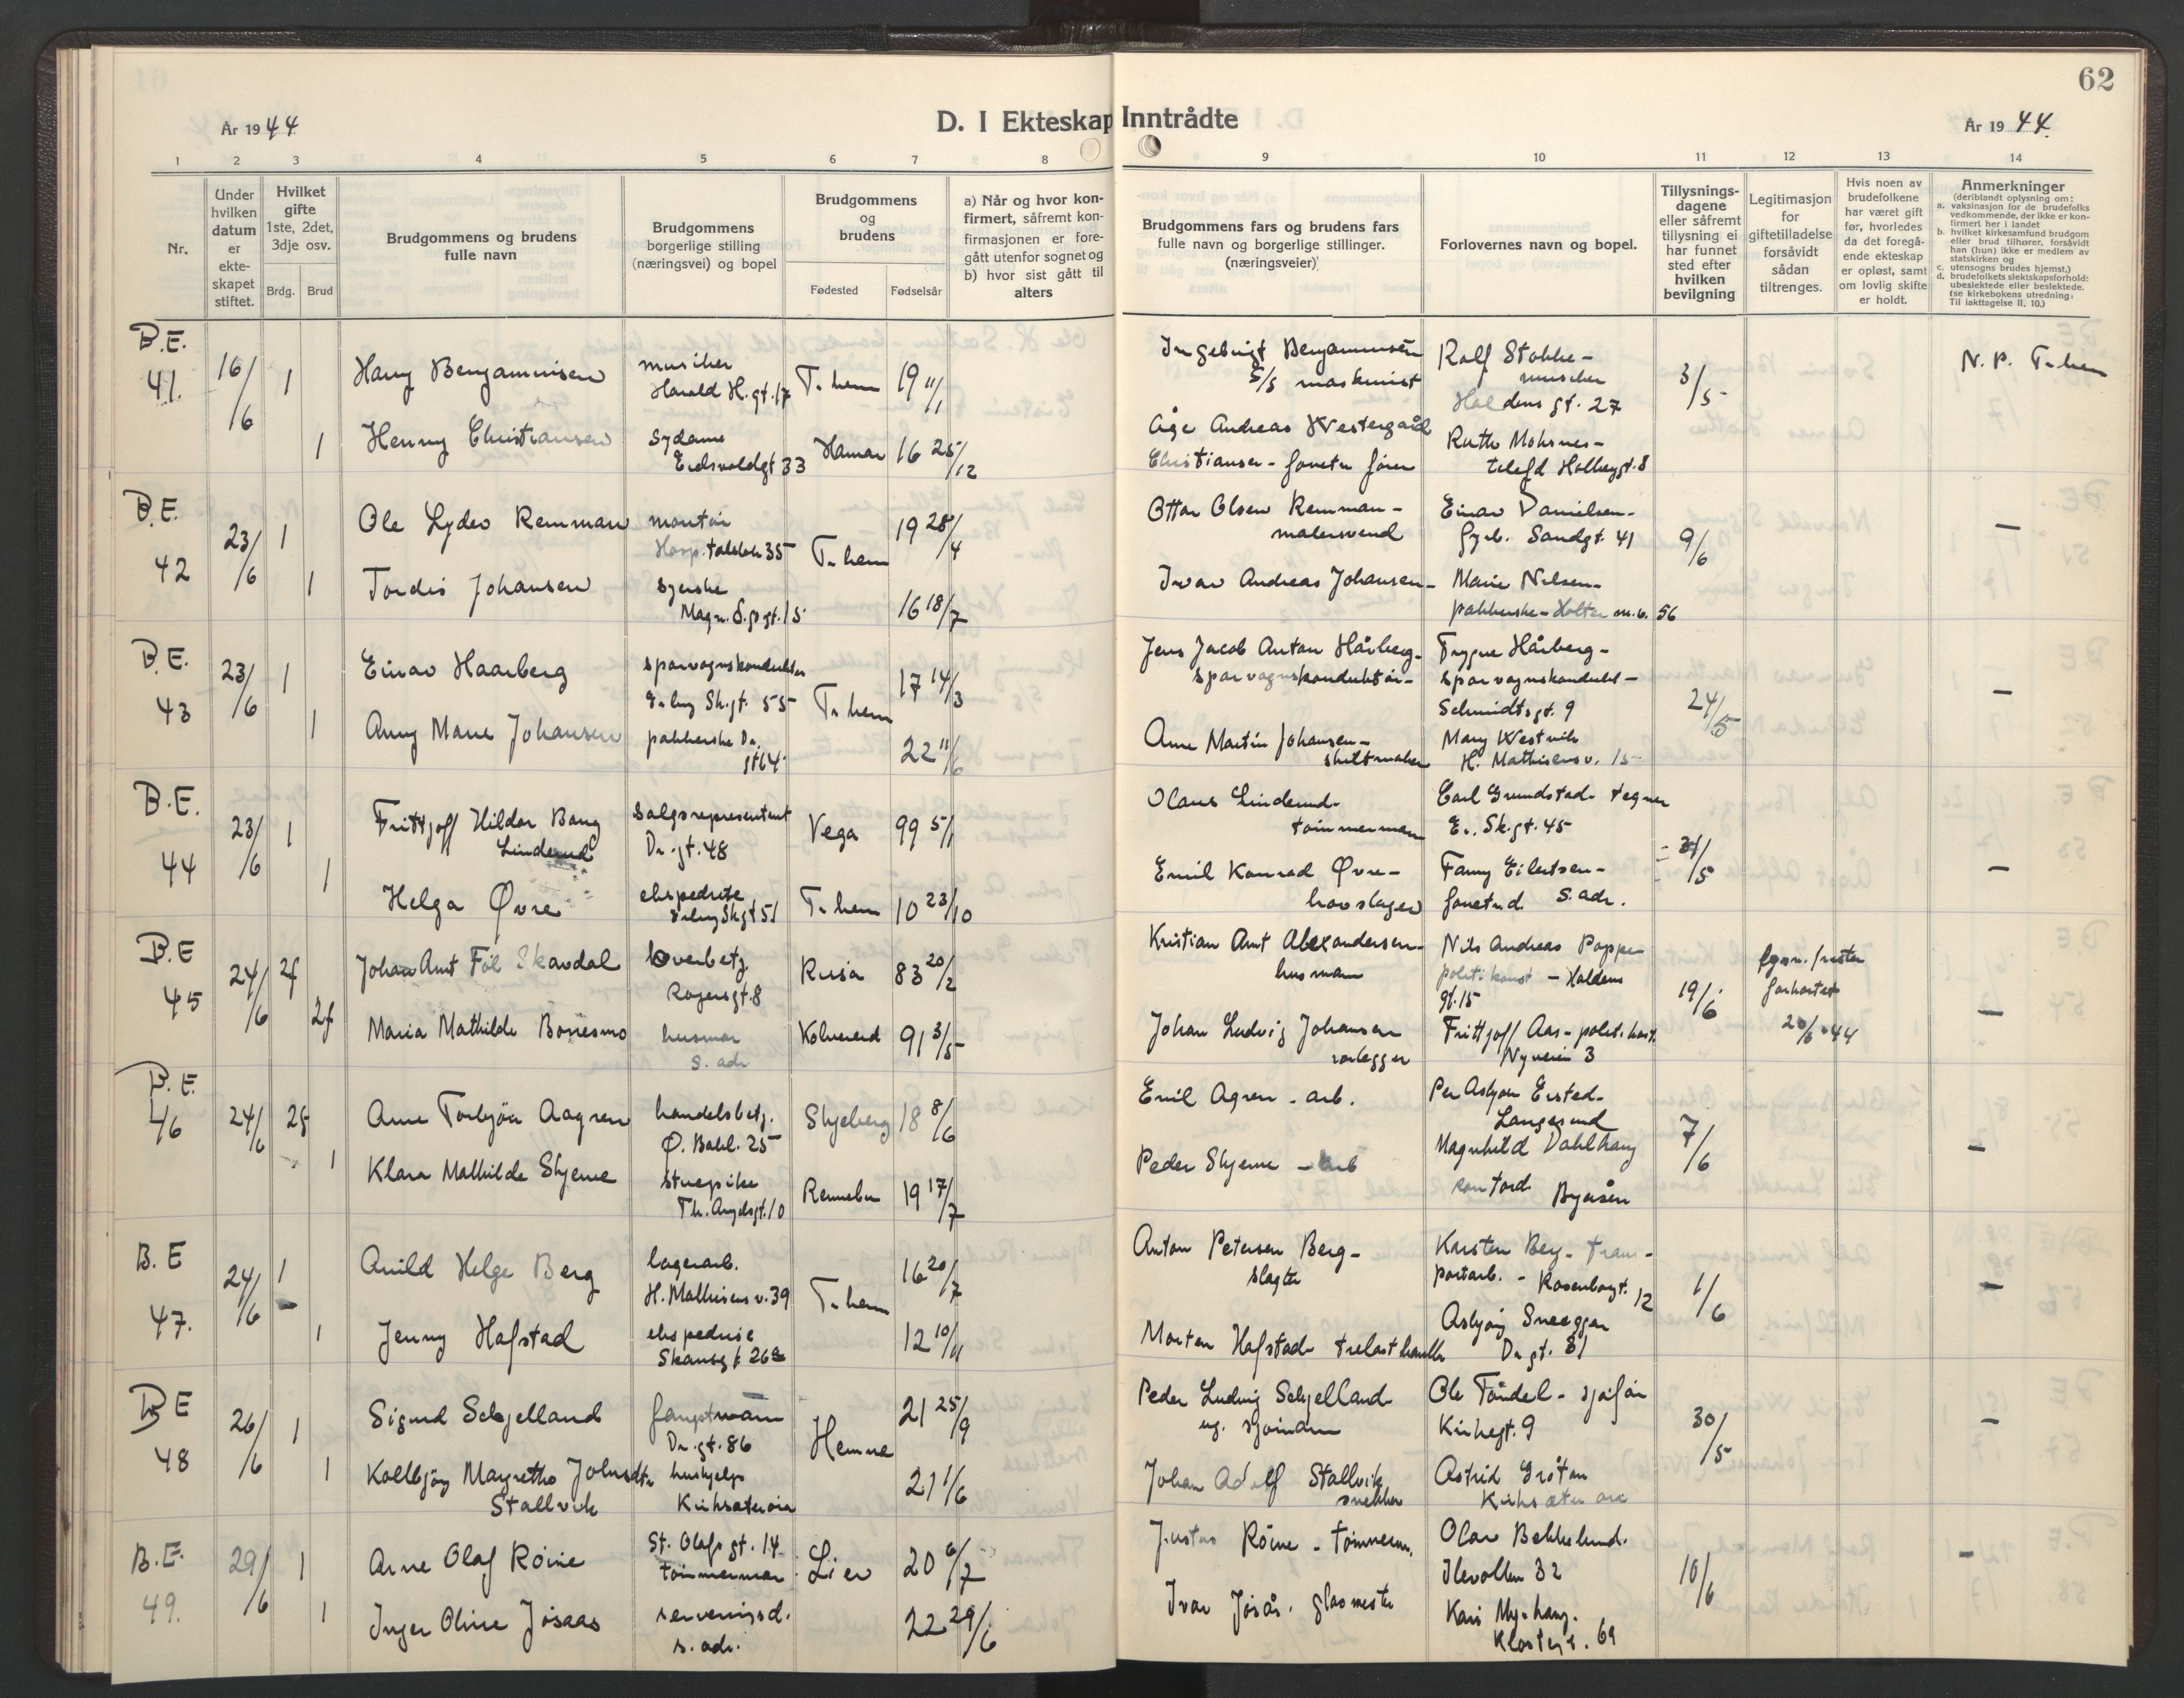 62
D. I Ekteskap Inntrådte
År 1944
År 1944.
1 2 3 4 5 6 7 8 9 10 11 12 13 14
Nr.
Under hvilken datum er ekteskapet stiftet.
Hvilket gifte 1ste, 2det, 3dje osv.
Brdg. Brud
Brudgommens og brudens fulle navn
Brudgommens borgerlige stilling (næringsvei) og bopel
Brudgommens og brudens
Fødested Fødselsår
a) Når og hvor konfirmert, såfremt konfirmasjonen er foregått utenfor sognet og b) hvor sist gått til alters
Brudgommens fars og brudens fars fulle navn og borgerlige stillinger. (næringsveier)
Forlovernes navn og bopel.
Tillysningsdagene eller såfremt tillysning ei har funnet sted efter hvilken bevilgning
Legitimasjon for giftetilladelse forsåvidt sådan tiltrenges.
Hvis noen av brudefolkene har været gift før, hvorledes da det foregående ekteskap er opløst, samt om lovlig skifte er holdt.
Anmerkninger
(deriblandt oplysning om:
a. vaksinasjon for de brudefolks vedkommende, der ikke er konfirmert her i landet
b. hvilket kirkesamfund brudgom eller brud tilhører, forsåvidt han (hun) ikke er medlem av statskirken og
c. utensogns brudes hjemst.)
d. brudefolkets slektskapsforhold: ubeslektede eller beslektede.
(se kirkebokens utredning: Til iakttagelse II, 10.)
B.E.
41. 16/6 1 Harry Benjaminsen musiker T.hem 19 11/11
Harald H.gt. 17
1 Henny Christiansen sydame Hamar 16 25/12
Eidsvoldgt 33
Ingebrigt Benjaminsen
S/S maskinist
Rolf Stokke -
musiker
Haldens gt. 27
3/5
N. P. T.hem
Åge Andreas Westergård
Christiansen -
Ruth Moksnes -
telefd
B.E.
42 23/6 1 Ole Lyder Remman montør T.hem 19 28/4
35
1 Tordis Johansen syerske 16 18/7
Magn. d. g. gt. 15
Ottar Olsen Remman -
malersvend
Einar Danielsen -
Sandgt. 41
9/6 -
Ivar Andreas Johansen -
Marie Nilsen -
pakkerske - Holterm.v. 56
B.E.
43 23/6 1 Einar Haarberg sporvognskonduktør T.hem 17 14/3
Erling Sk.gt. 55
1 Anny Marie Johansen pakkerske Dr. 22 11/6
gt 64
Jens Jacob Anton Hårberg -
sporvognskonduktør -
Trygve Hårberg -
sporvognskondukt -
Schmidtsgt. 9
24/5 -
Arne Martin Johansen -
skiltmaker
Mary Westvik
H. Mathisensv. 15
B.E.
44 23/6 1 Frittjoff Hildor Bang salgsrepresentant Vega 99 5/1
Linderud Dr.gt. 48
1 Helga Øvre ekspeditrise T.hem 10 23/10
Erling Skgt 51
Olaus Linderud -
tømmermann
Carl Grundstad - tegner
Er. Sk.gt. 45
31/5 -
Emil Konrad Øvre -
hovslager
Fanny Eilertsen -
s. adr.
B.E
45 24/6 2f Johan Arnt Skavdal overbetj. 83 20/2
gt. 8
2f Maria Mathilde Bonesmo husmor Kolvereid 91 3/5
s. adr
Kristian Arnt Alexandersen -
husmann
Nils Andreas Poppe
politikonst - Haldens
gt. 15
19/6 -
20/6 44
Johan Ludvig Johansen
rørlegger
Frittjoff Aas - politikonst.
Nyveien 3
B.E.
46 24/6 Arne Torbjørn Aagren handelsbetj. Skjeberg 18 8/6
Ø. Bakl. 25
1 Klara Mathilde Skjerve stuepike Rennebu 19 17/7
Th. Angelsgt. 10
Emil Agren - arb.
Per Asbjørn Ersted -
Langesund
7/6 -
Peder Skjerve - arb
Magnhild Dahlhaug
Byåsen
B.E
47. 24/6 1 Arild Helge Berg lagerarb. T.hem 16 20/7
H. Mathisens v. 39
1 Jenny Hafstad ekspeditrise 12 10/11
Skansegt. 26
Anton Petersen Berg -
slagter
Karsten Berg - trans-
portarb. - Rosenborgt. 12
1/6 -
Morten Hafstad - trelasthandler
Asbjørg Sneeggen
Dr gt. 31
B E
48 26/6 1 Sigurd Schjelland Hemne 21 25/9
Dr.gt. 86
1 Kollbjørg Margrethe Johnsdtr. hushjelp 21 1/6
Stallvik Kirksæterøra
Peder Ludvig Schjelland
sjømann
Ole Tøndel -
Kirkegt. 9
30/5 -
Johan Adolf Stallvik
snekker
Astrid Grøtan
Kirksæterøra
B.E.
49. 29/6 1 Arne Olaf Röine St. Olafs gt. 14 Lier 20 6/7
tømmermann
1 Inger Oline Jøsaas serveringsd. 22 29/6
s. adr.
Justus Röine - tømmerm.
Olav Bekkelund.
Ilevollen 32
10/6 -
Ivar Jøsås. glasmester
Kari Myrhaug.
Klostergt. 69